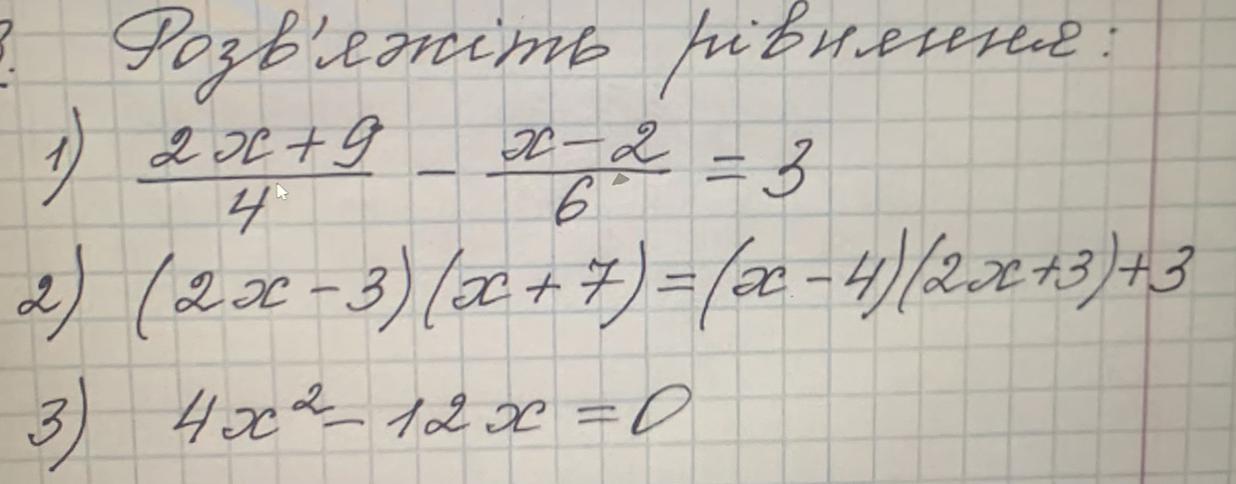 3. Розв'яжіть рівняння:
1) \frac{2x+9}{4} - \frac{x-2}{6} = 3
2) (2x-3)(x+7)=(x-4)(2x+3)+3
3) 4x² - 12x = 0